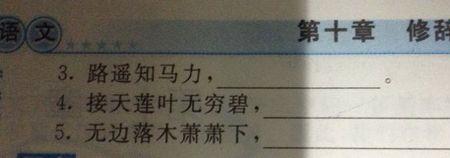 语文 第十章 修辞
3. 路遥知马力，____________。
4. 接天莲叶无穷碧，____________
5. 无边落木萧萧下，____________